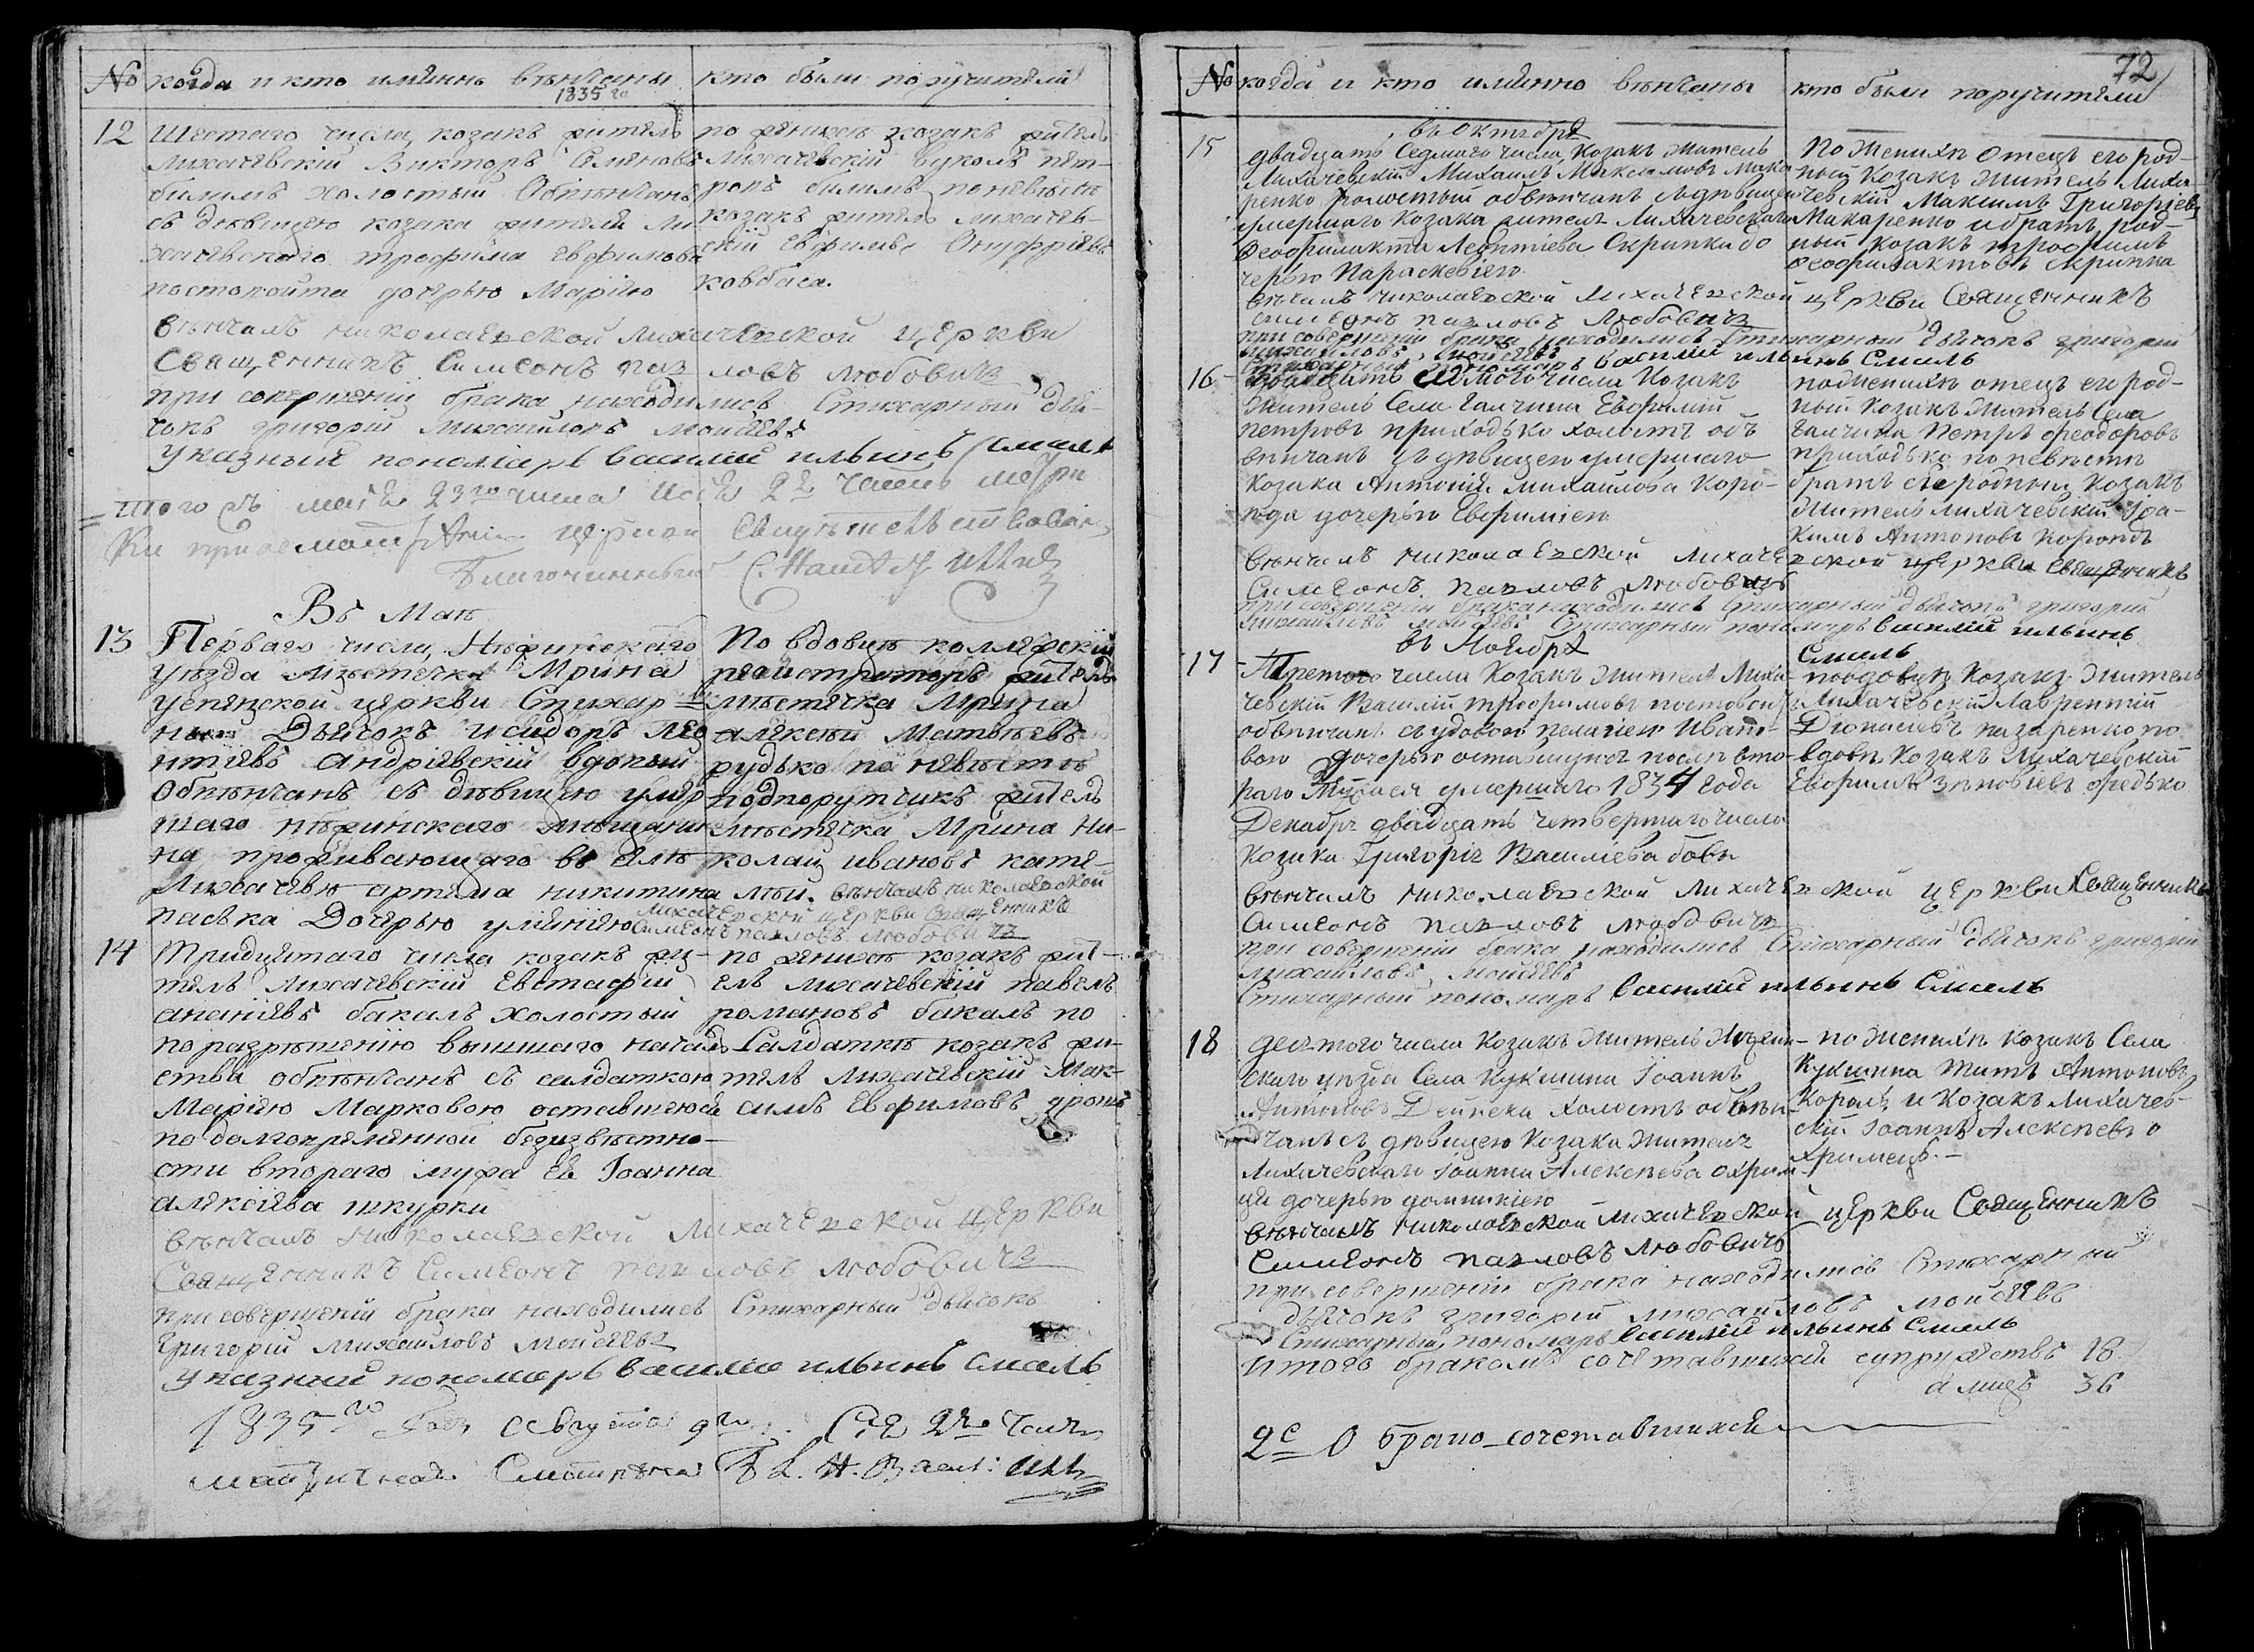 № когда и кто имянно венчаны кто были поручители
1835 го
12
Шестаго числа, козакъ житель
Лихачевскій Викторъ Семяновъ
билимъ холостый Обвѣнчанъ
съ дѣвицею козака жителя Ли
хачевскаго трофима Евфимова
постовойта дочерью Маріею
по женихѣ козакъ житель
Лихачевскій вуколъ пет-
ровъ билимъ по невѣстѣ
козакъ житель лихачев-
скій Евфимъ Онуфріевъ
ковбаса.
вѣнчалъ николаевской Лихачевской церкви
Священникъ Симеонъ павловъ любовичъ
при совершеніи брака находились Стихарный дья-
чокъ григорій михайловъ моисѣевъ
указный пономарь василий ильинъ Смаль
того мая 23го числа
церкви свидѣтельствовалъ
Благочинный
Въ Маѣ
13
Перваго числа, Нѣжинскаго
уѣзда Мѣстечка Мрина
успенской церкви Стихар
ный Дьячокъ исидоръ лео
нтіевъ андріевскій вдовый
обвѣнчанъ съ дѣвицею умер
шаго нѣжинскаго мѣщани
на проживающаго въ селѣ
Лихачевѣ артема никитина
паська Дочерью уліяніею
По вдовцѣ коллежскій
регистраторъ житель
мѣстечка Мрина
алексѣй Матвѣевъ
рудько по невѣстѣ
подпорутчикъ житель
мѣстечка Мрина Ни-
колай ивановъ
вѣнчалъ николаевской
Лихачевской церкви Священникъ
Симеонъ павловъ любовичъ
14
Тридцятаго числа козакъ жи-
тель лихачевскій Евстафій
ананіевъ бакалъ холостый
по разрѣшенію вышшаго началь
ства обвѣнчанъ съ салдаткою
Маріею Марковою оставшеюся
по долговременной безизвѣстно-
сти втораго мужа ея Іоанна
алексіева шкурки
по женихѣ козакъ жит-
ель лихачевскій павелъ
романовъ бакалъ по
Салдаткѣ козакъ жи-
тель лихачевскій Мак-
симъ Евфимовъ
вѣнчалъ николаевской Лихачевской церкви
Священникъ Симеонъ павловъ любовичъ
при совершеніи брака находились Стихарный дьячокъ
Григорій михайловъ моисѣевъ
указный пономарь василий ильинъ Смаль
1835го года Августа 9го
Смотрѣна
72
№ когда и кто имянно вѣнчаны кто были поручители
въ Октябрѣ
15
двадцать Седмаго числа Козакъ житель
Лихачевскій Михаилъ Максимовъ мака
ренко холостый обвѣнчанъ съ дѣвицею
умершаго Козака жителя Лихачевскаго
Феофилакта Леонтіева Скрипки до
черью Параскевіею
По женихѣ отецъ его род-
ный Козакъ житель Лиха
чевскій Максимъ Григоріевъ
Макаренко и братъ род-
ный козакъ трофимъ
феофилактовъ скрипка
вѣнчалъ николаевской Лихачевской церкви Священникъ
симеонъ павловъ любовичъ
при совершеніи брака находились Стихарный дьячокъ григорій
михайловъ моисѣевъ
Стихарный пономарь василий ильинъ Смаль
16
двадцать седмого числа Козакъ
житель Села Галчина Евфимій
петровъ приходько холостъ об
вѣнчанъ съ дѣвицею умершаго
козака Антонія михайлова Коро-
пда дочерью Евфиміею
по женихѣ отецъ его род-
ный Козакъ житель Села
Галчина Петръ феодоровъ
приходько по невѣстѣ
братъ ея родный Козакъ
житель лихачевскій Іоа-
кимъ Антоновъ
вѣнчалъ николаевской лихачевской церкви священникъ
Симеонъ павловъ любовичъ
при совершеніи брака находились Стихарный дьячокъ григорій
михайловъ моисѣевъ Стихарный пономарь василий ильинъ
Смаль
въ Ноябрѣ
17
Третого числа Козакъ житель Лиха-
чевскій Василій трофимовъ постовойтъ
обвѣнчанъ съ удовою пелагіею Ивано-
вою дочерью оставшуюся послѣ вто-
раго Мужа ея умершаго 1834 года
Декабря двадцать четвертаго числа
козака Григорія Василіева
по вдовцѣ Козакъ житель
Лихачевскій Лаврентій
Діонисіевъ назаренко по
вдовѣ Козакъ Лихачевскій
Евфимъ Зѣновіевъ Федько
вѣнчалъ николаевской Лихачевской церкви Священникъ
Симеонъ павловъ любовичъ
при совершеніи брака находились Стихарный дьячокъ григорій
михайловъ моисѣевъ
Стихарный пономарь василий ильинъ Смаль
18
десятого числа Козакъ житель Нѣжин-
скаго уѣзда Села Кукшина Іоаннъ
Антоновъ Дейнека холостъ обвѣн-
чанъ съ дѣвицею Козака жителя
Лихачевскаго Іоанна Алексѣева охрим
ця дочерью домникіею
по женихѣ козакъ Села
Кукшина Титъ Антоновъ
Король и Козакъ Лихачев-
скій Іоаннъ Алексѣевъ о
хримецъ.
вѣнчалъ николаевской лихачевской церкви Священникъ
Симеонъ павловъ любовичъ
при совершеніи брака находились Стихарный
дьячокъ григорій михайловъ моисѣевъ
Стихарный пономарь василий ильинъ Смаль
итого бракомъ сочетавшихся супружествъ 18
а лицъ 36
2е О брако-сочетавшихся